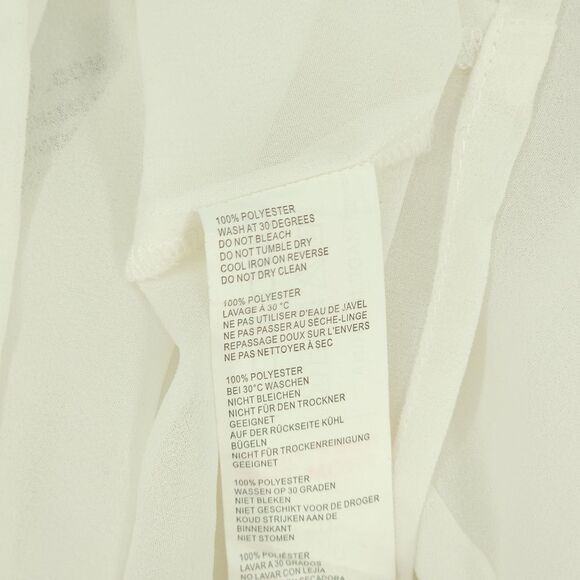 100% POLYESTER
WASH AT 30 DEGREES
DO NOT BLEACH
DO NOT TUMBLE DRY
COOL IRON ON REVERSE
DO NOT DRY CLEAN
100% POLYESTER
LAVAGE À 30 °C
NE PAS UTILISER D'EAU DE JAVEL
NE PAS PASSER AU SÈCHE-LINGE
REPASSAGE DOUX SUR L'ENVERS
NE PAS NETTOYER À SEC
100% POLYESTER
BEI 30°C WASCHEN
NICHT BLEICHEN
NICHT FÜR DEN TROCKNER
GEEIGNET
AUF DER RÜCKSEITE KÜHL
BÜGELN
NICHT FÜR TROCKENREINIGUNG
GEEIGNET
100% POLYESTER
WASSEN OP 30 GRADEN
NIET BLEKEN
NIET GESCHIKT VOOR DE DROGER
KOUD STRIJKEN AAN DE
BINNENKANT
NIET STOMEN
100% POLIÉSTER
LAVAR A 30 GRADOS
NO LAVAR CON LEJÍA
SECADORA